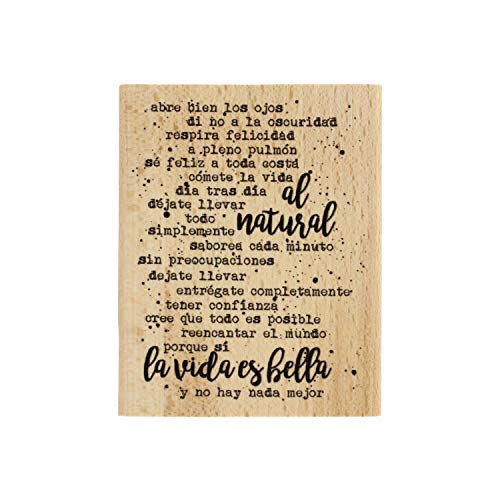 abre bien los ojos
di no a la oscuridad
respira felicidad
a pleno pulmón
sé feliz a toda costa
cómete la vida
día tras día
déjate llevar
al
todo
natural
simplemente
saborea cada minuto
sin preocupaciones
dejate llevar
entrégate completamente
tener confianza
cree que todo es posible
reencantar el mundo
porque sí
la vida es bella
y no hay nada mejor